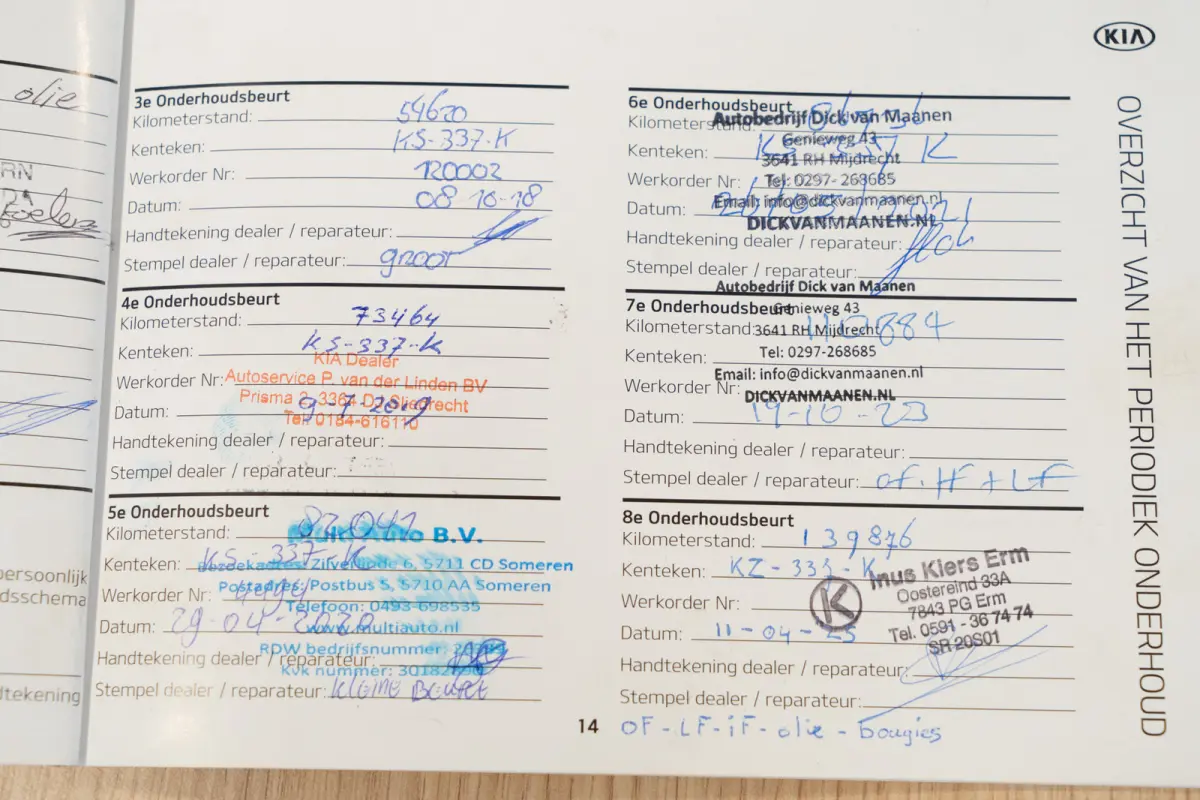 olie
RN
persoonlijk
dsschema
dtekening
3e Onderhoudsbeurt
Kilometerstand: 54620
Kenteken: KS-337-K
Werkorder Nr: 120002
Datum: 08-10-18
Handtekening dealer / reparateur:
Stempel dealer / reparateur: groot
4e Onderhoudsbeurt
Kilometerstand: 73464
Kenteken: KS-337-K
KIA Dealer
Werkorder Nr: Autoservice P. van der Linden BV
Prisma 2, 3364 DJ Sliedrecht
Datum: 9-7-2019
Tel. 0184-616110
Handtekening dealer / reparateur:
Stempel dealer / reparateur:
5e Onderhoudsbeurt
Kilometerstand: 82041
Multi Auto B.V.
Kenteken: KS-337-K
Bezoekadres: Zilverlinde 6, 5711 CD Someren
Postadres: Postbus 5, 5710 AA Someren
Werkorder Nr:
Telefoon: 0493-698535
Datum: 29-04-2020
www.multiauto.nl
RDW bedrijfsnummer:
Handtekening dealer / reparateur:
Kvk nummer:
Stempel dealer / reparateur: Kleine Beurt
14
KIA
OVERZICHT VAN HET PERIODIEK ONDERHOUD
6e Onderhoudsbeurt
Autobedrijf Dick van Maanen
Kilometerstand:
Genieweg 43
Kenteken: KS-337-K
3641 RH Mijdrecht
Werkorder Nr:
Tel: 0297-268685
Email: info@dickvanmaanen.nl
Datum:
DICKVANMAANEN.NL
Handtekening dealer / reparateur:
Stempel dealer / reparateur:
Autobedrijf Dick van Maanen
7e Onderhoudsbeurt
Genieweg 43
Kilometerstand: 110884
3641 RH Mijdrecht
Kenteken:
Tel: 0297-268685
Email: info@dickvanmaanen.nl
Werkorder Nr:
DICKVANMAANEN.NL
Datum: 19-10-23
Handtekening dealer / reparateur:
Stempel dealer / reparateur: OF. IF + LF
8e Onderhoudsbeurt
Kilometerstand: 139876
Kenteken: KZ-333-K
K
Inus Kiers Erm
Oostereind 33A
Werkorder Nr:
7843 PG Erm
Datum: 11-04-25
Tel. 0591 - 36 74 74
SR 20S01
Handtekening dealer / reparateur:
Stempel dealer / reparateur:
OF - LF - iF - olie - bougies